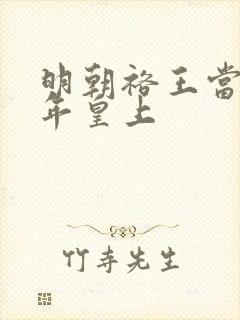 明朝裕王當
年皇上
竹寺先生